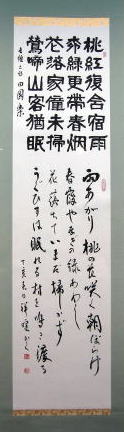 桃紅復含宿雨
柳緑更帯春烟
花落家僮未掃
鶯啼山客猶眠
王維之詩 田園楽
雨あがり 桃の花咲く朝ぼらけ
春霞 やなぎの緑あわし
花落ちていまだ掃かず
うぐひすは眠れる村を鳴き渡る